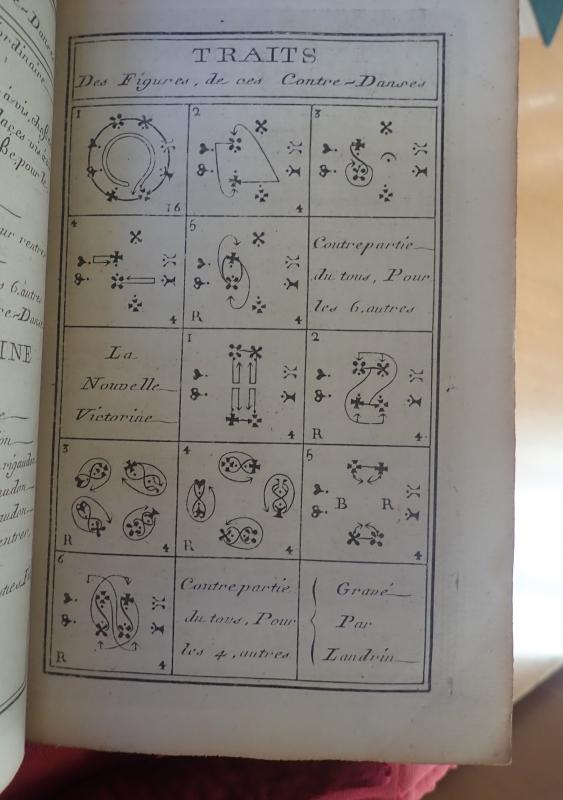 TRAITS
Des Figures, de ces Contre-Danses
1
16
2
4
3
4
4
5
R
4
Contrepartie
du tous, Pour
les 6, autres
La
Nouvelle
Victorine
1
4
2
R
4
3
R
4
4
R
4
5
B
R
4
6
R
4
Contrepartie
du tous, Pour
les 4, autres
Gravé
Par
Landrin